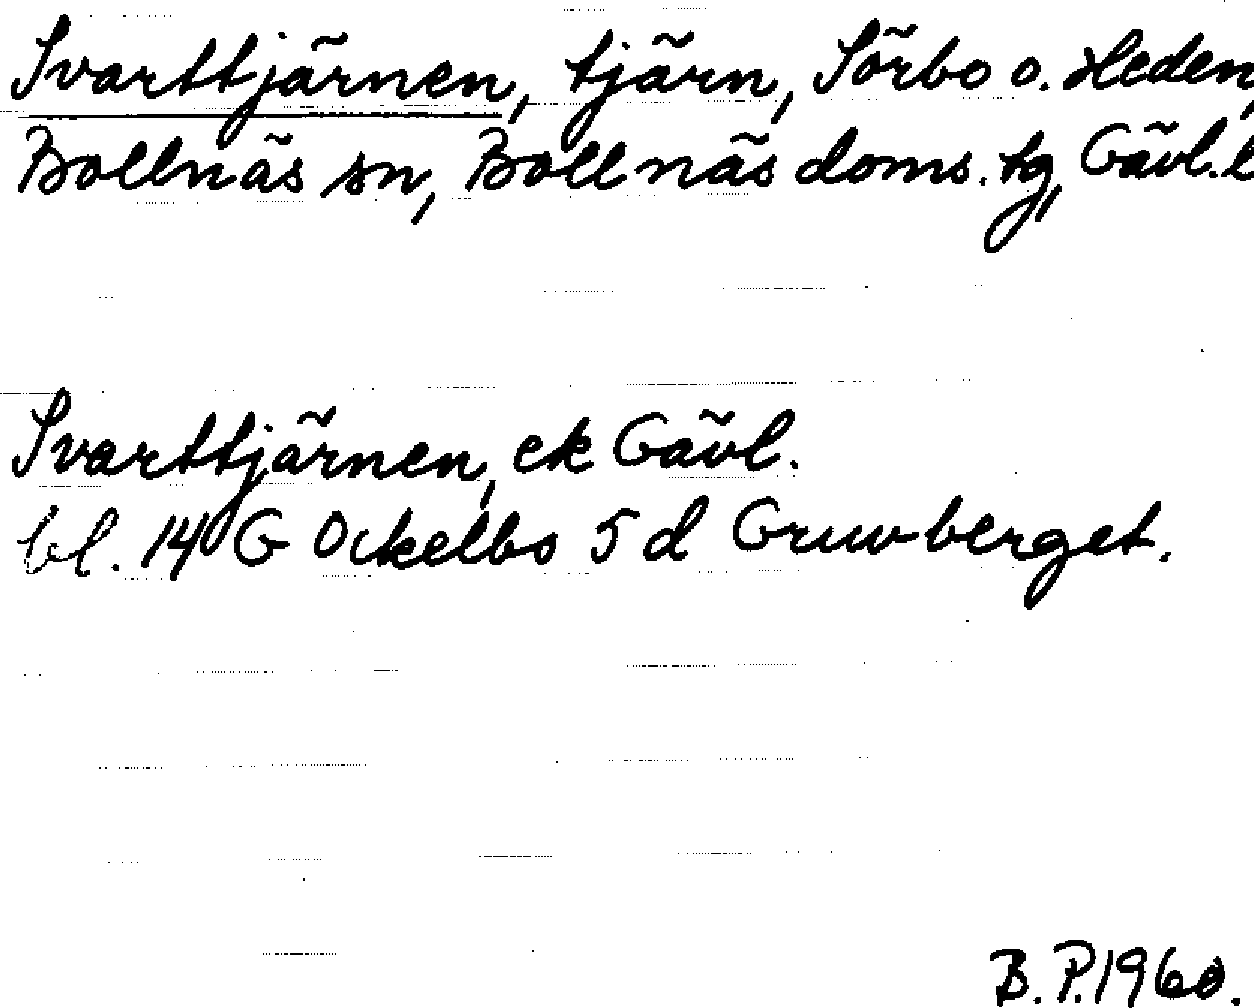 Svarttjärnen, tjärn, Sörbo o. Heden,
Bollnäs sn, Bollnäs doms. tg, Gävl. l
Svarttjärnen, ek Gävl.
bl. 14 G Ockelbo 5 d Gruvberget.
B. P. 1960.